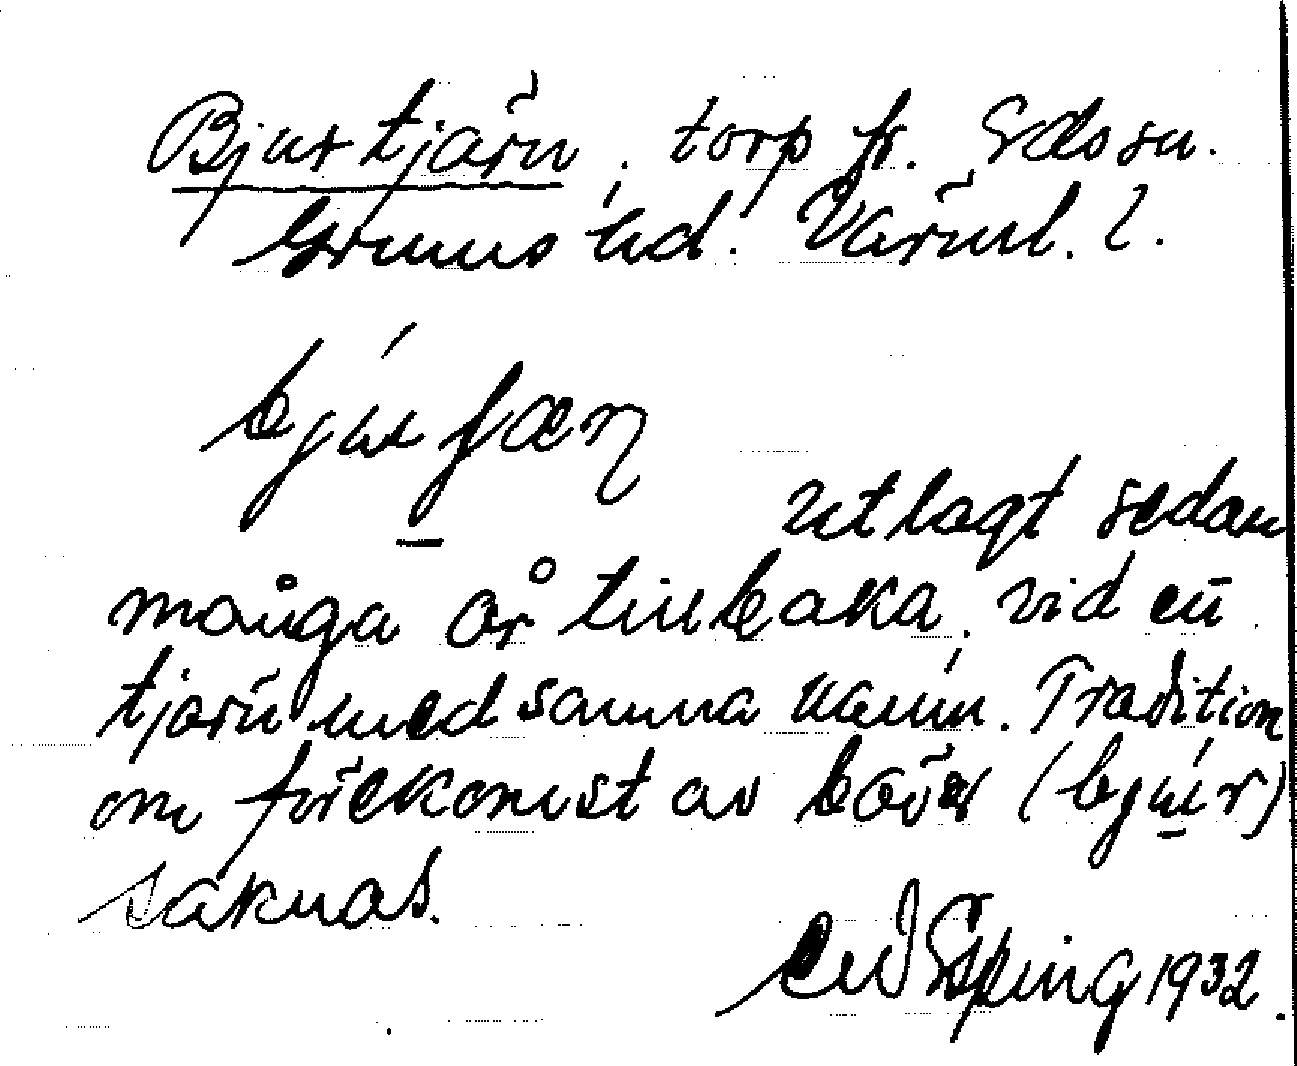 Bjurtjärn, torp fr. Edssn.
Grums hd. Värml. l.
utlagt sedan
många år tillbaka, vid en
tjärn med samma namn. Tradition
om förekomst av bäver (bjur)
saknas.
Esping 1932.